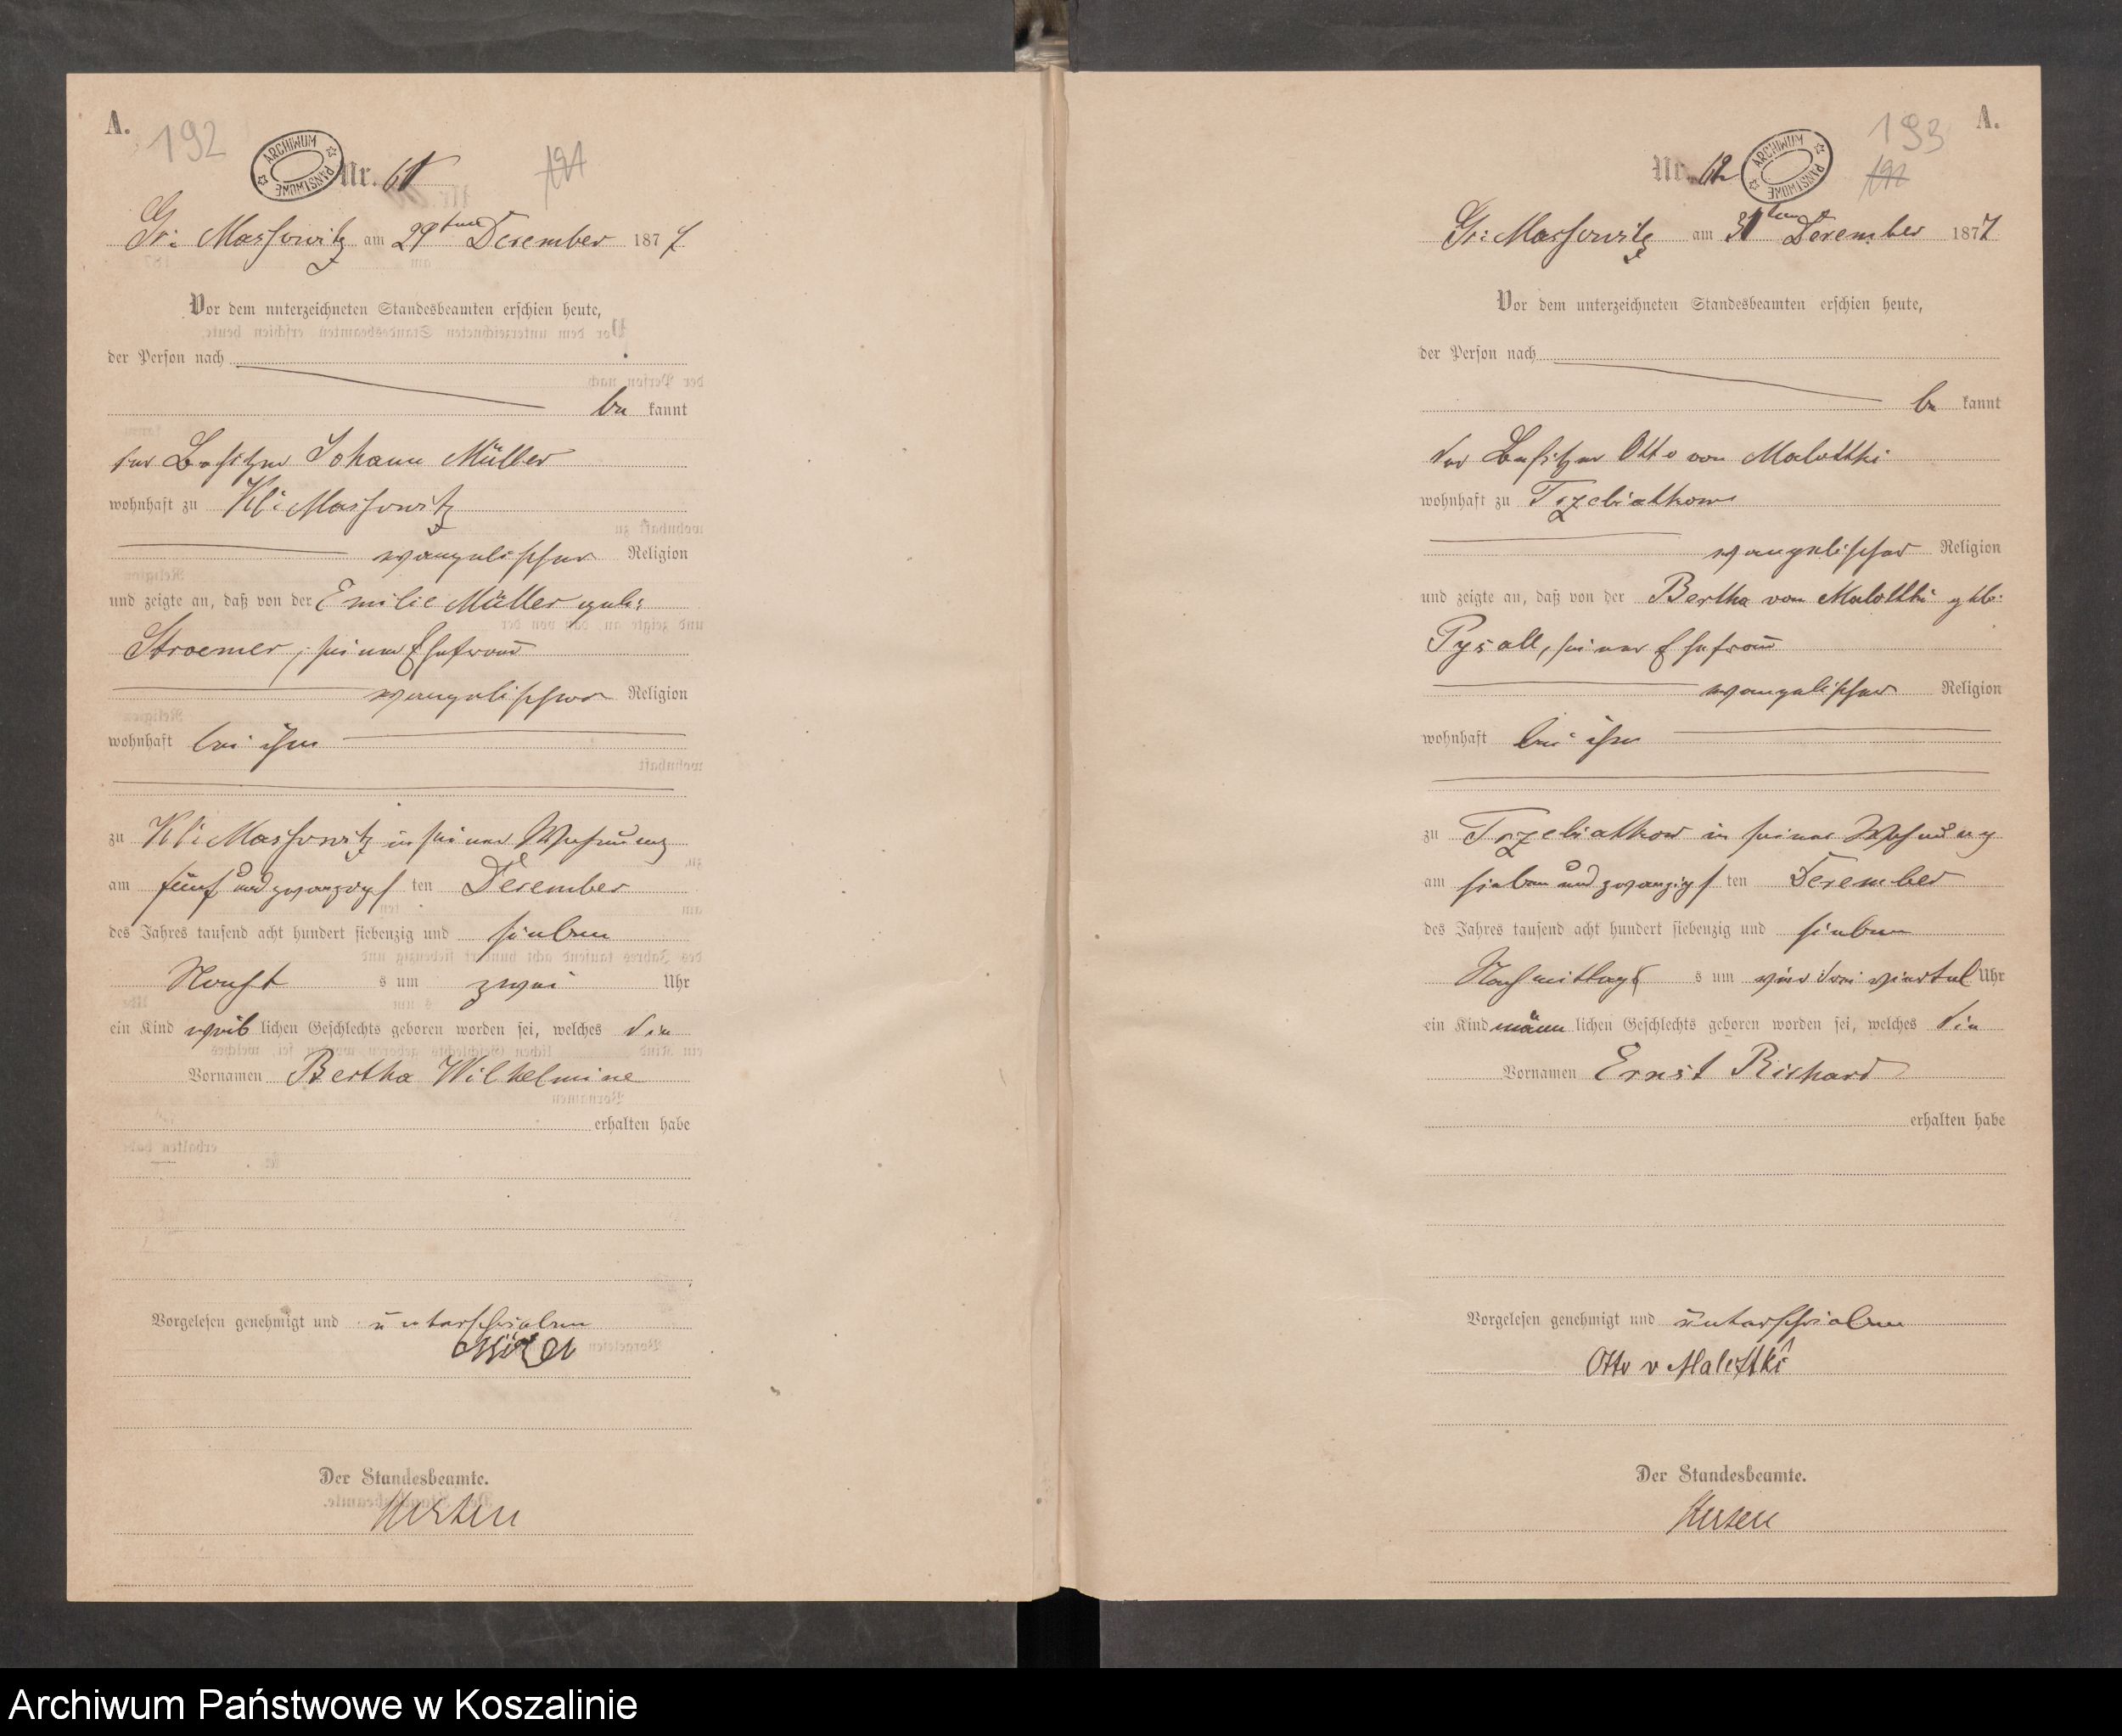 A.
192
ARCHIWUM PAŃSTWOWE
Nr. 61
191
Gr: Massowitz am 29ten December 1877
Vor dem unterzeichneten Standesbeamten erschien heute,
der Person nach
be kannt
der Besitzer Johann Müller
wohnhaft zu Kl: Massowitz
evangelischer Religion
und zeigte an, daß von der Emilie Müller geb:
Stroemer, seiner Ehefrau
evangelischer Religion
wohnhaft bei ihm
zu Kl: Massowitz in seiner Wohnung
am fünf und zwanzigs ten December
des Jahres tausend acht hundert siebenzig und sieben
Nacht s um zwei Uhr
ein Kind weib lichen Geschlechts geboren worden sei, welches die
Vornamen Bertha Wilhelmine
erhalten habe
Vorgelesen genehmigt und unterschrieben
Der Standesbeamte.
A.
193
Nr. 62
ARCHIWUM PAŃSTWOWE
192
Gr: Massowitz am 31ten December 1877
Vor dem unterzeichneten Standesbeamten erschien heute,
der Person nach
be kannt
der Besitzer Otto von Malottki
wohnhaft zu Trzebiatkow
evangelischer Religion
und zeigte an, daß von der Bertha von Malottki geb:
Pysall, seiner Ehefrau
evangelischer Religion
wohnhaft bei ihm
zu Trzebiatkow in seiner Wohnung
am sieben und zwanzigs ten December
des Jahres tausend acht hundert siebenzig und sieben
Nachmittags s um vier drei viertel Uhr
ein Kind männ lichen Geschlechts geboren worden sei, welches die
Vornamen Ernst Richard
erhalten habe
Vorgelesen genehmigt und unterschrieben
Otto v Malottki
Der Standesbeamte.
Archiwum Państwowe w Koszalinie